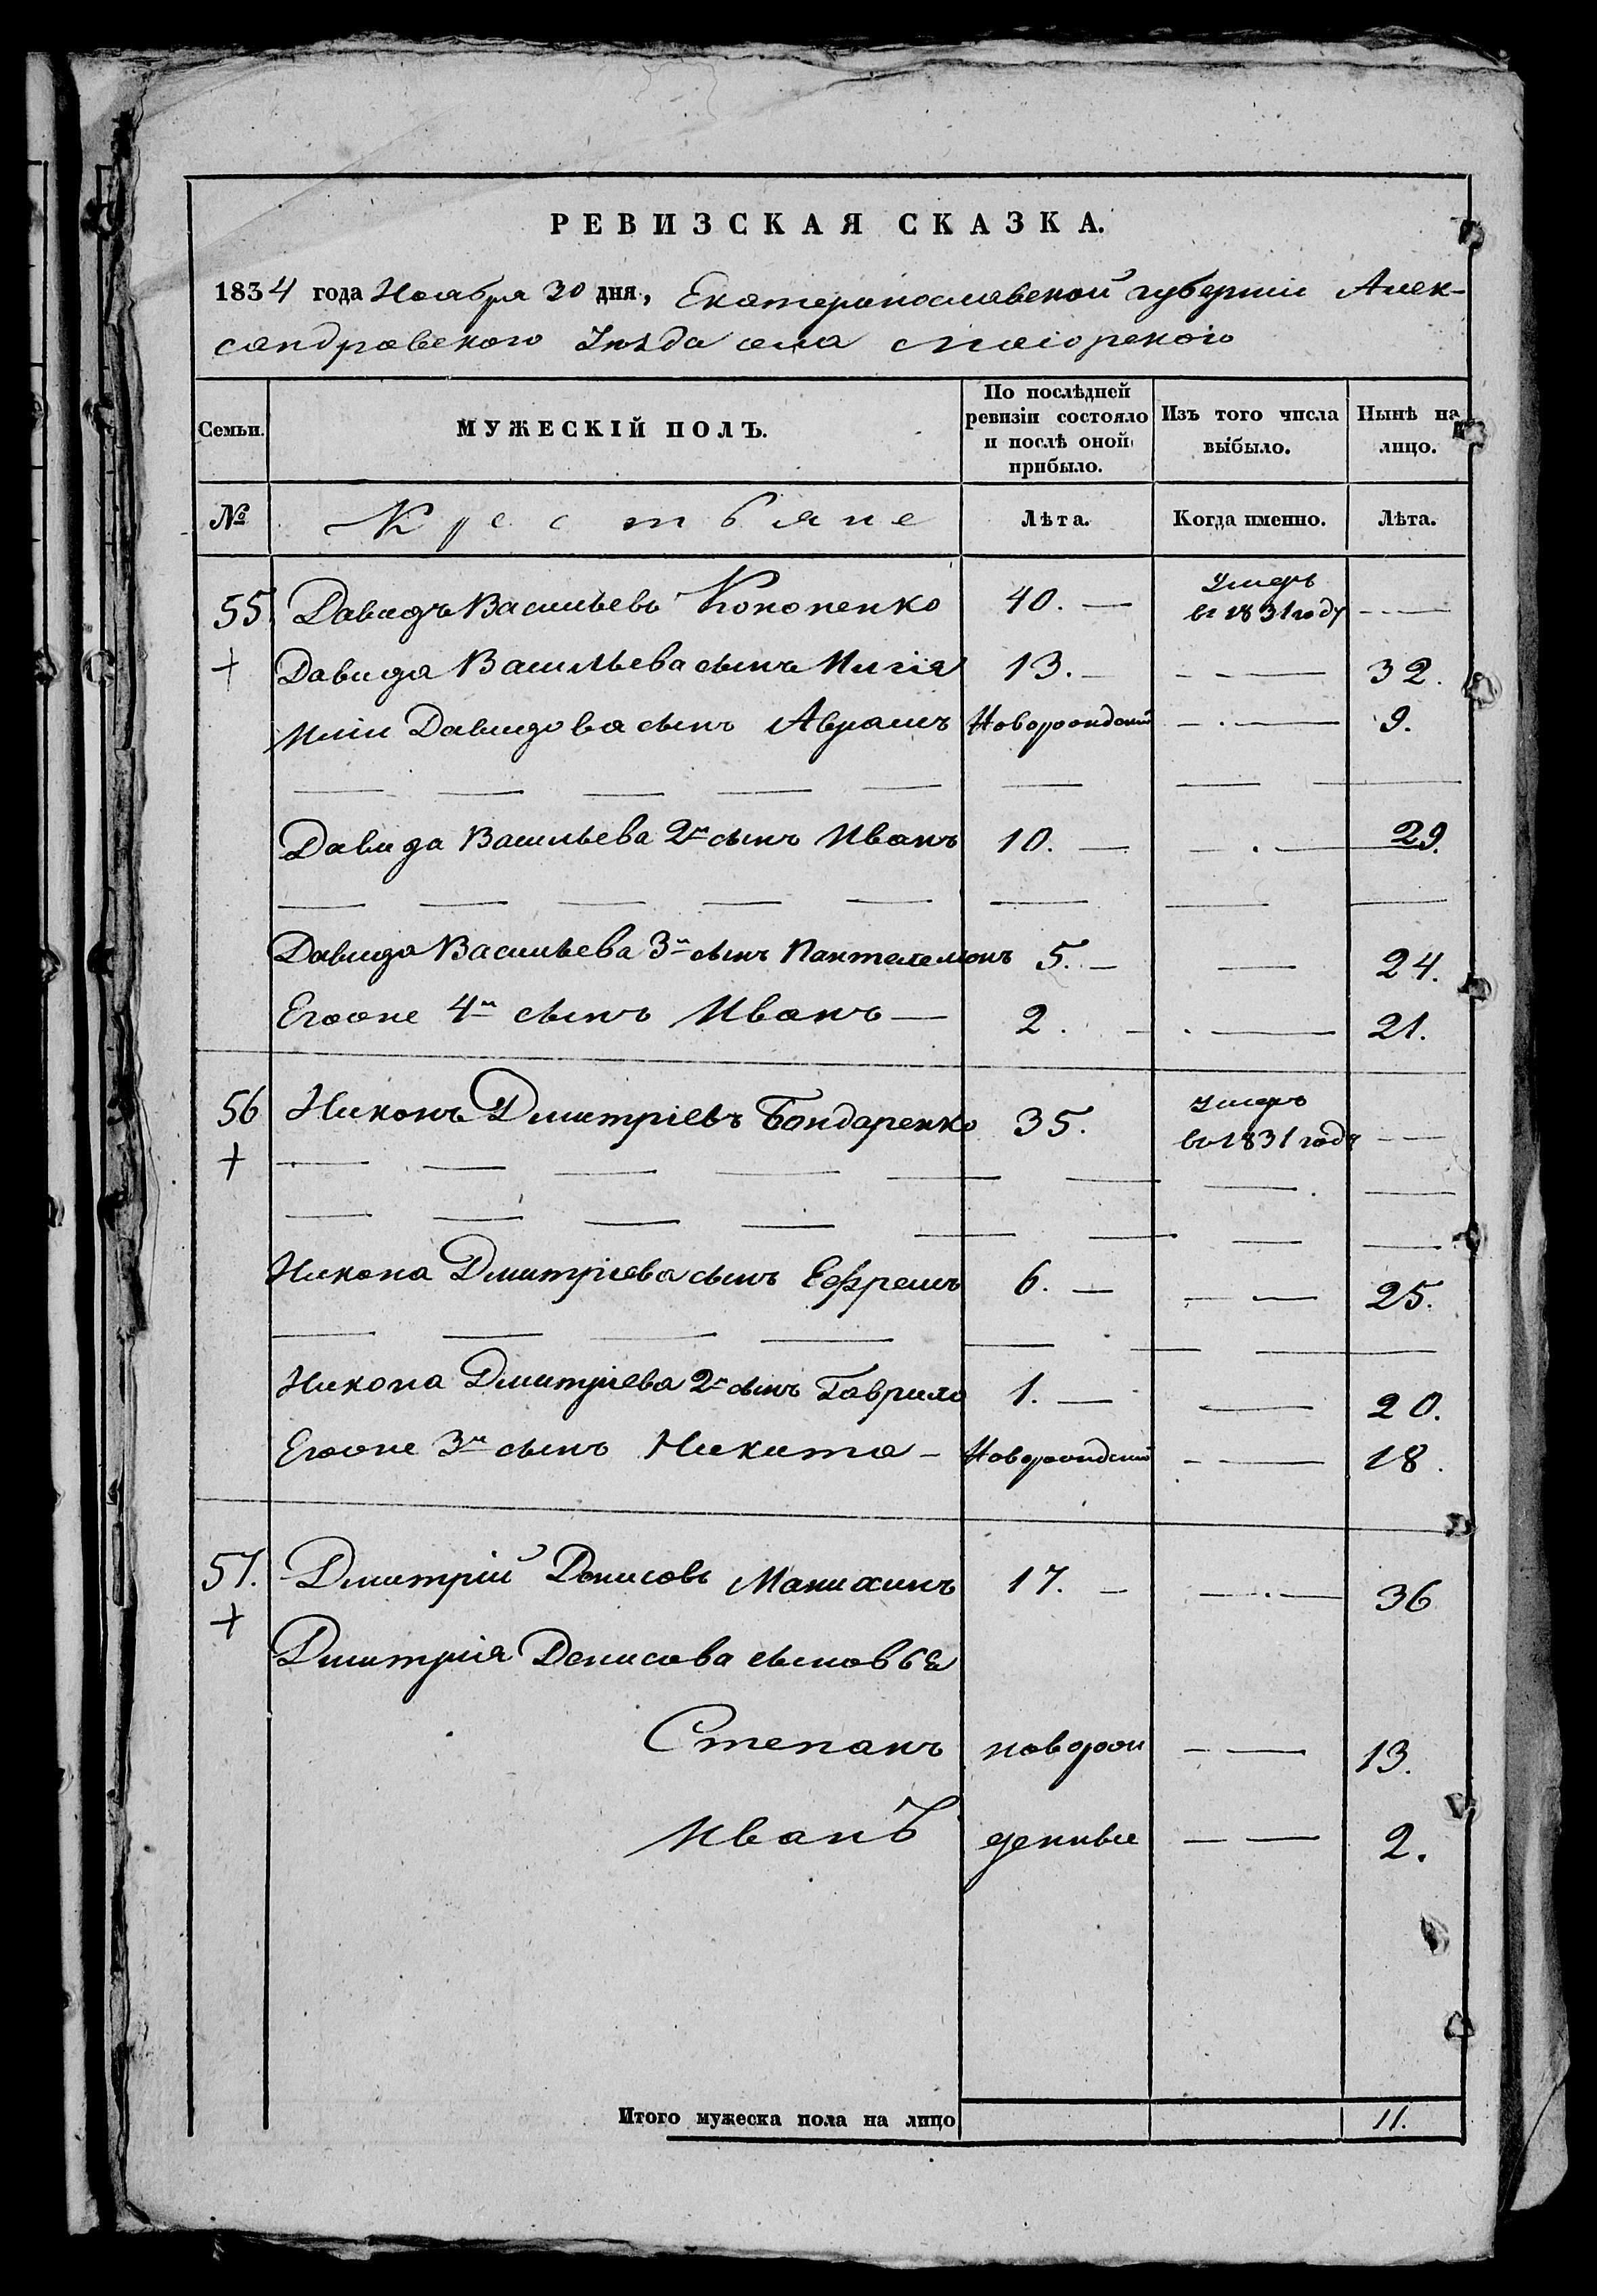 РЕВИЗСКАЯ СКАЗКА.
1834 года Ноября 30 дня, Екатеринославской губерніи Алек-
сандровского Уѣзда села Маіорского
Семьи. МУЖЕСКІЙ ПОЛЪ. По послѣдней ревизіи состояло и послѣ оной прибыло. Изъ того числа выбыло. Нынѣ на лицо.
№ Крестьяне Лѣта. Когда именно. Лѣта.
55. Давидъ Васильевъ Кононенко 40. — Умеръ въ 1831 году — —
+ Давида Васильева сынъ Илія 13. — - - — 32.
Иліи Давидова сынъ Аврамъ Новорожденный - . — 9.
Давида Васильева 2й сынъ Иванъ 10. — — . — 29.
Давида Васильева 3й сынъ Пантелемонъ 5. — — 24.
Егоже 4й сынъ Иванъ — 2. - . — 21.
56 Никонъ Дмитріевъ Бондаренко 35. Умеръ во 1831 году — —
+
Никона Дмитріева сынъ Ефремъ 6. — — — 25.
Никона Дмитріева 2й сынъ Гаврило 1. — — 20.
Егоже 3й сынъ Никита - Новорожденный - — 18.
57. Дмитрій Денисовъ Манихинъ 17. - — . — 36
+
Дмитрія Денисова сыновья
Степанъ поворож - — 13.
Иванъ денные — — 2.
Итого мужеска пола на лицо 11.